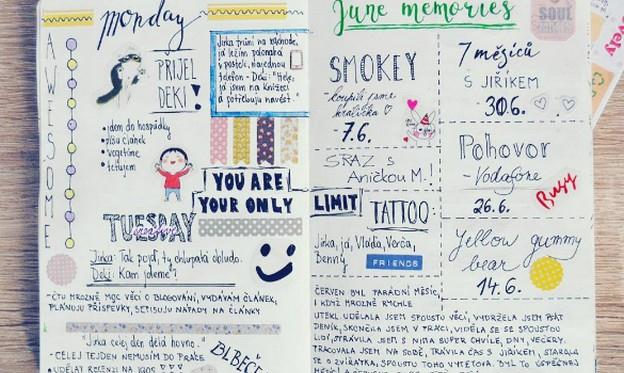 monday
AWESOME
PŘIJEL
DEKI!
• jdem do hospůdky
• píšu článek
• vegetíme
• tetujem
Jirka trůní na záchodě,
já ležím polonahá
v posteli, najednou
telefon - Deki: "Hele,
já jsem na knížecí
a potřebuju navést."
YOU ARE
YOUR ONLY
LIMIT
TUESDAY
Jirka: Tak pojď, ty chlupatá obludo.
Deki: Kam jdeme?
- ČTU HROZNĚ MOC VĚCÍ O BLOGOVÁNÍ, VYDÁVÁM ČLÁNEK,
PLÁNUJU PŘÍSPĚVKY, SEPISUJU NÁPADY NA ČLÁNKY
"Jirka celej den dělá hovno."
- CELEJ TEJDEN NEMUSÍM DO PRÁCE
• UDĚLAT RECENZI NA
BLBEČEK
June memories
SOUL
SMOKEY
- koupili jsme
králíčka
- 7.6.
SRAZ S
Aničkou M.!
TATTOO:
Jirka, já, Vlaďa, Verča,
Benny
FRIENDS
7 měsíců
S JIŘÍKEM
30.6.
Pohovor
- Vodafone
26.6.
Busy
Yellow gummy
bear
14.6.
Lovely
ČERVEN BYL PARÁDNÍ MĚSÍC,
I KDYŽ HROZNĚ RYCHLE
UTEKL. UDĚLALA JSEM SPOUSTU VĚCÍ, VYDRŽELA JSEM PSÁT
DENÍK, SKONČILA JSEM V PRÁCI, VIDĚLA SE SE SPOUSTOU
LIDÍ, STRÁVILA JSEM S NIMA SUPER CHVÍLE, DNY, VEČERY.
PRACOVALA JSEM NA SOBĚ, TRÁVILA ČAS S JIŘÍKEM, STARALA
SE O ZVÍŘATKA, SPOUSTU TOHO VYTETOVALA. BYL TO ÚSPĚŠNEJ